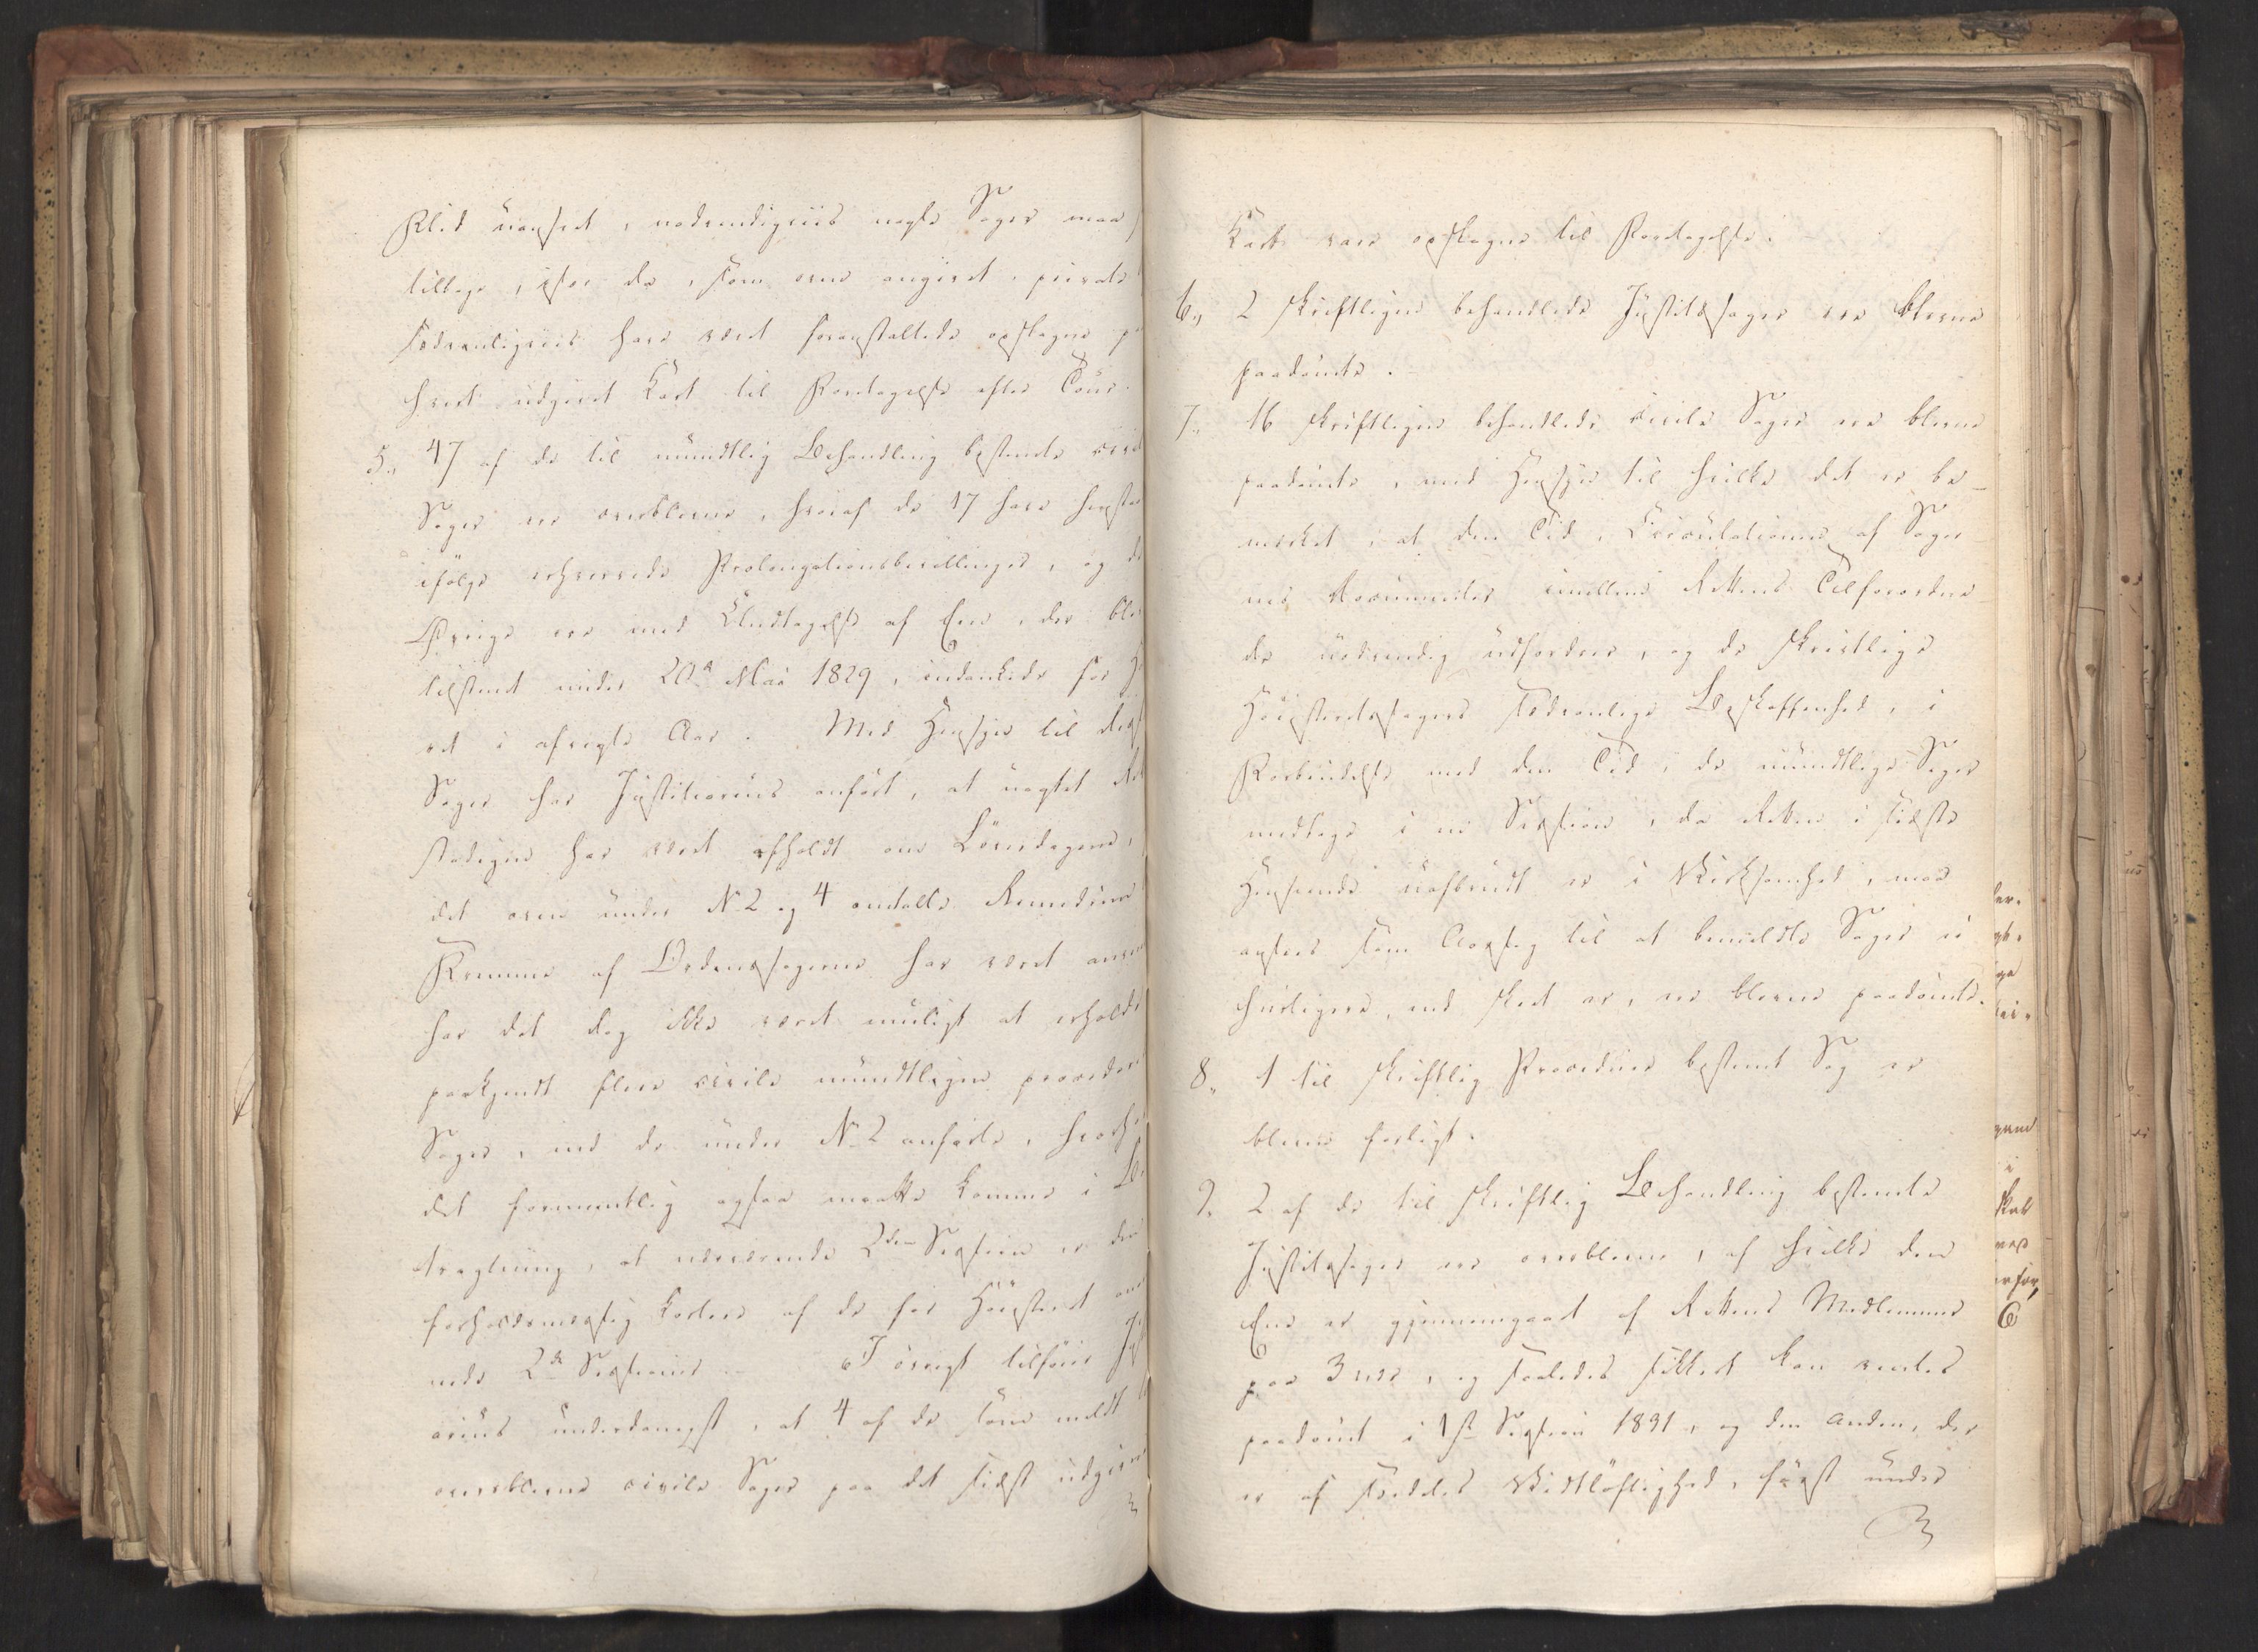 Flid uanseet, nødvendigviis nogle Sager maa
tillægges, da, som oven angivet,
sædvanligviis have været foranstaltede opslagne
hvert udgivet Kort til Foretagelse efter Tour.
5., 47 af de til mündtlig Behandling bestemte civile
Sager ere overblevne, hvoraf de 17 have henstaaet
ifölge erhvervede Prolongationsbevillinger, og de
Øvrige ere med Undtagelse af Een, der blev
tilstemt under 20de Mai 1829, indankede for Høieste
ret i afvigte Aar. Med Hensyn til disse
Sager har Justitiarius anført, at uagtet Ret
stedigen har været afholdt om Löverdagene,
det oven under No 2 og 4 omtalte Remedium
Fremme af Ordenssagerne har været anvendt
har det dog ikke været muligt at erholde
paakjendt flere civile mündtligen procederede
Sager, end de under No 2 anførte, hvorhos
det formeentlig ogsaa maatte komme i Be
tragtning, at nærværende 2den Session er den
forholdsmæssig korteste af de for Höiesteret
nede 2de Sessioner. I øvrigt tilföier Justiti
arius underdanigst, at 4 af de som meldt
overblevne civile Sager paa det sidst udgivne
Kort vare opslagne til Foretagelse.
6., 2 skriftligen behandlede Justitssager ere blevne
paadömte.
7., 16 skriftligen behandlede civile Sager ere blevne
paadömte, med Hensyn til hvilke det er be-
mærket, at den Tid, Circulationen af Sager-
nes Documenter imellem Rettens Tilforordne-
de nödvendig udfordrer, og de skriftlige
Höiesteretssagers sædvanlige Beskaffenhed, i
Forbindelse med den Tid, de mündtlige Sager
medtage i en Session, da Retten i sidste
Henseende uafbrudt er i Virksomhed, maa
ansees som Aarsag til at bemeldte Sager ei
hurtigere, end skeet er, ere blevne paadömte.
8., 1 til skriftlig Procedure bestemt Sag er
bleven forligt.
9. 2 af de til skriftlig Behandling bestemte
Justitssager ere overblevne, af hvilke den
Ene er gjennemgaaet af Rettens Medlemmer
paa 3 nær, og saaledes sikkert kan ventes
paadömt i 1ste Session 1831, og den Anden, der
er af særdeles Vidtlöftighed, först under